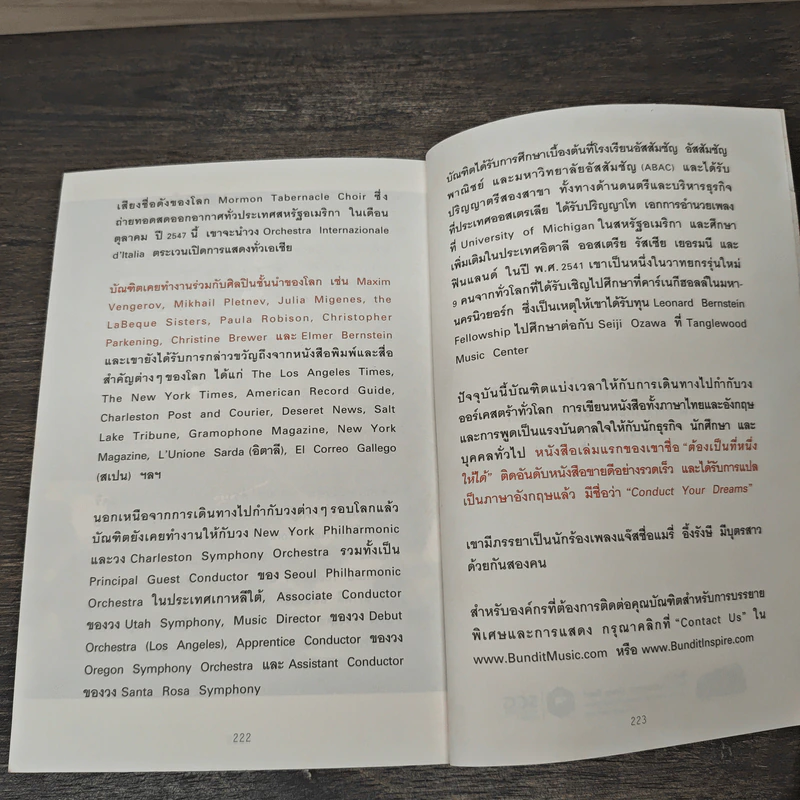 เสียงชื่อดังของโลก Mormon Tabernacle Choir ซึ่ง
ถ่ายทอดสดออกอากาศทั่วประเทศสหรัฐอเมริกา ในเดือน
ตุลาคม ปี 2547 นี้ เขาจะนำวง Orchestra Internazionale
d'Italia ตระเวนเปิดการแสดงทั่วเอเชีย
บัณฑิตเคยทำงานร่วมกับศิลปินชั้นนำของโลก เช่น Maxim
Vengerov, Mikhail Pletnev, Julia Migenes, the
LaBeque Sisters, Paula Robison, Christopher
Parkening, Christine Brewer และ Elmer Bernstein
และเขายังได้รับการกล่าวขวัญถึงจากหนังสือพิมพ์และสื่อ
สำคัญต่างๆ ของโลก ได้แก่ The Los Angeles Times,
The New York Times, American Record Guide,
Charleston Post and Courier, Deseret News, Salt
Lake Tribune, Gramophone Magazine, New York
Magazine, L'Unione Sarda (อิตาลี), El Correo Gallego
(สเปน) ฯลฯ
นอกเหนือจากการเดินทางไปกำกับวงต่างๆ รอบโลกแล้ว
บัณฑิตยังเคยทำงานให้กับวง New York Philharmonic
และวง Charleston Symphony Orchestra รวมทั้งเป็น
Principal Guest Conductor ของ Seoul Philharmonic
Orchestra ในประเทศเกาหลีใต้, Associate Conductor
ของวง Utah Symphony, Music Director ของวง Debut
Orchestra (Los Angeles), Apprentice Conductor ของวง
Oregon Symphony Orchestra และ Assistant Conductor
ของวง Santa Rosa Symphony
222
บัณฑิตได้รับการศึกษาเบื้องต้นที่โรงเรียนอัสสัมชัญ อัสสัมชัญ
พาณิชย์ และมหาวิทยาลัยอัสสัมชัญ (ABAC) และได้รับ
ปริญญาตรีสองสาขา ทั้งทางด้านดนตรีและบริหารธุรกิจ
ที่ประเทศออสเตรเลีย ได้รับปริญญาโท เอกการอำนวยเพลง
ที่ University of Michigan ในสหรัฐอเมริกา และศึกษา
เพิ่มเติมในประเทศอิตาลี ออสเตรีย รัสเซีย เยอรมนี และ
ฟินแลนด์ ในปี พ.ศ. 2541 เขาเป็นหนึ่งในวาทยกรรุ่นใหม่
9 คนจากทั่วโลกที่ได้รับเชิญไปศึกษาที่คาร์เนกีฮอลล์ในมหา-
นครนิวยอร์ก ซึ่งเป็นเหตุให้เขาได้รับทุน Leonard Bernstein
Fellowship ไปศึกษาต่อกับ Seiji Ozawa ที่ Tanglewood
Music Center
ปัจจุบันนี้บัณฑิตแบ่งเวลาให้กับการเดินทางไปกำกับวง
ออร์เคสตร้าทั่วโลก การเขียนหนังสือทั้งภาษาไทยและอังกฤษ
และการพูดเป็นแรงบันดาลใจให้กับนักธุรกิจ นักศึกษา และ
บุคคลทั่วไป หนังสือเล่มแรกของเขาชื่อ "ต้องเป็นที่หนึ่ง
ให้ได้" ติดอันดับหนังสือขายดีอย่างรวดเร็ว และได้รับการแปล
เป็นภาษาอังกฤษแล้ว มีชื่อว่า "Conduct Your Dreams"
เขามีภรรยาเป็นนักร้องเพลงแจ๊สชื่อแมรี่ อึ้งรังษี มีบุตรสาว
ด้วยกันสองคน
สำหรับองค์กรที่ต้องการติดต่อคุณบัณฑิตสำหรับการบรรยาย
พิเศษและการแสดง กรุณาคลิกที่ "Contact Us" ใน
www.BunditMusic.com หรือ www.BunditInspire.com
223